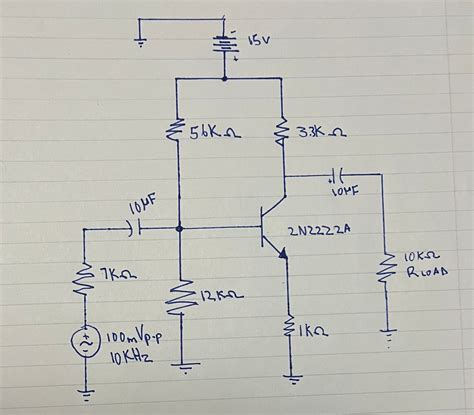 -
15V
+
56KΩ
33KΩ
10μF
+
10μF
2N2222A
7KΩ
12KΩ
10KΩ
RLOAD
100mVp-p
10KHz
1KΩ